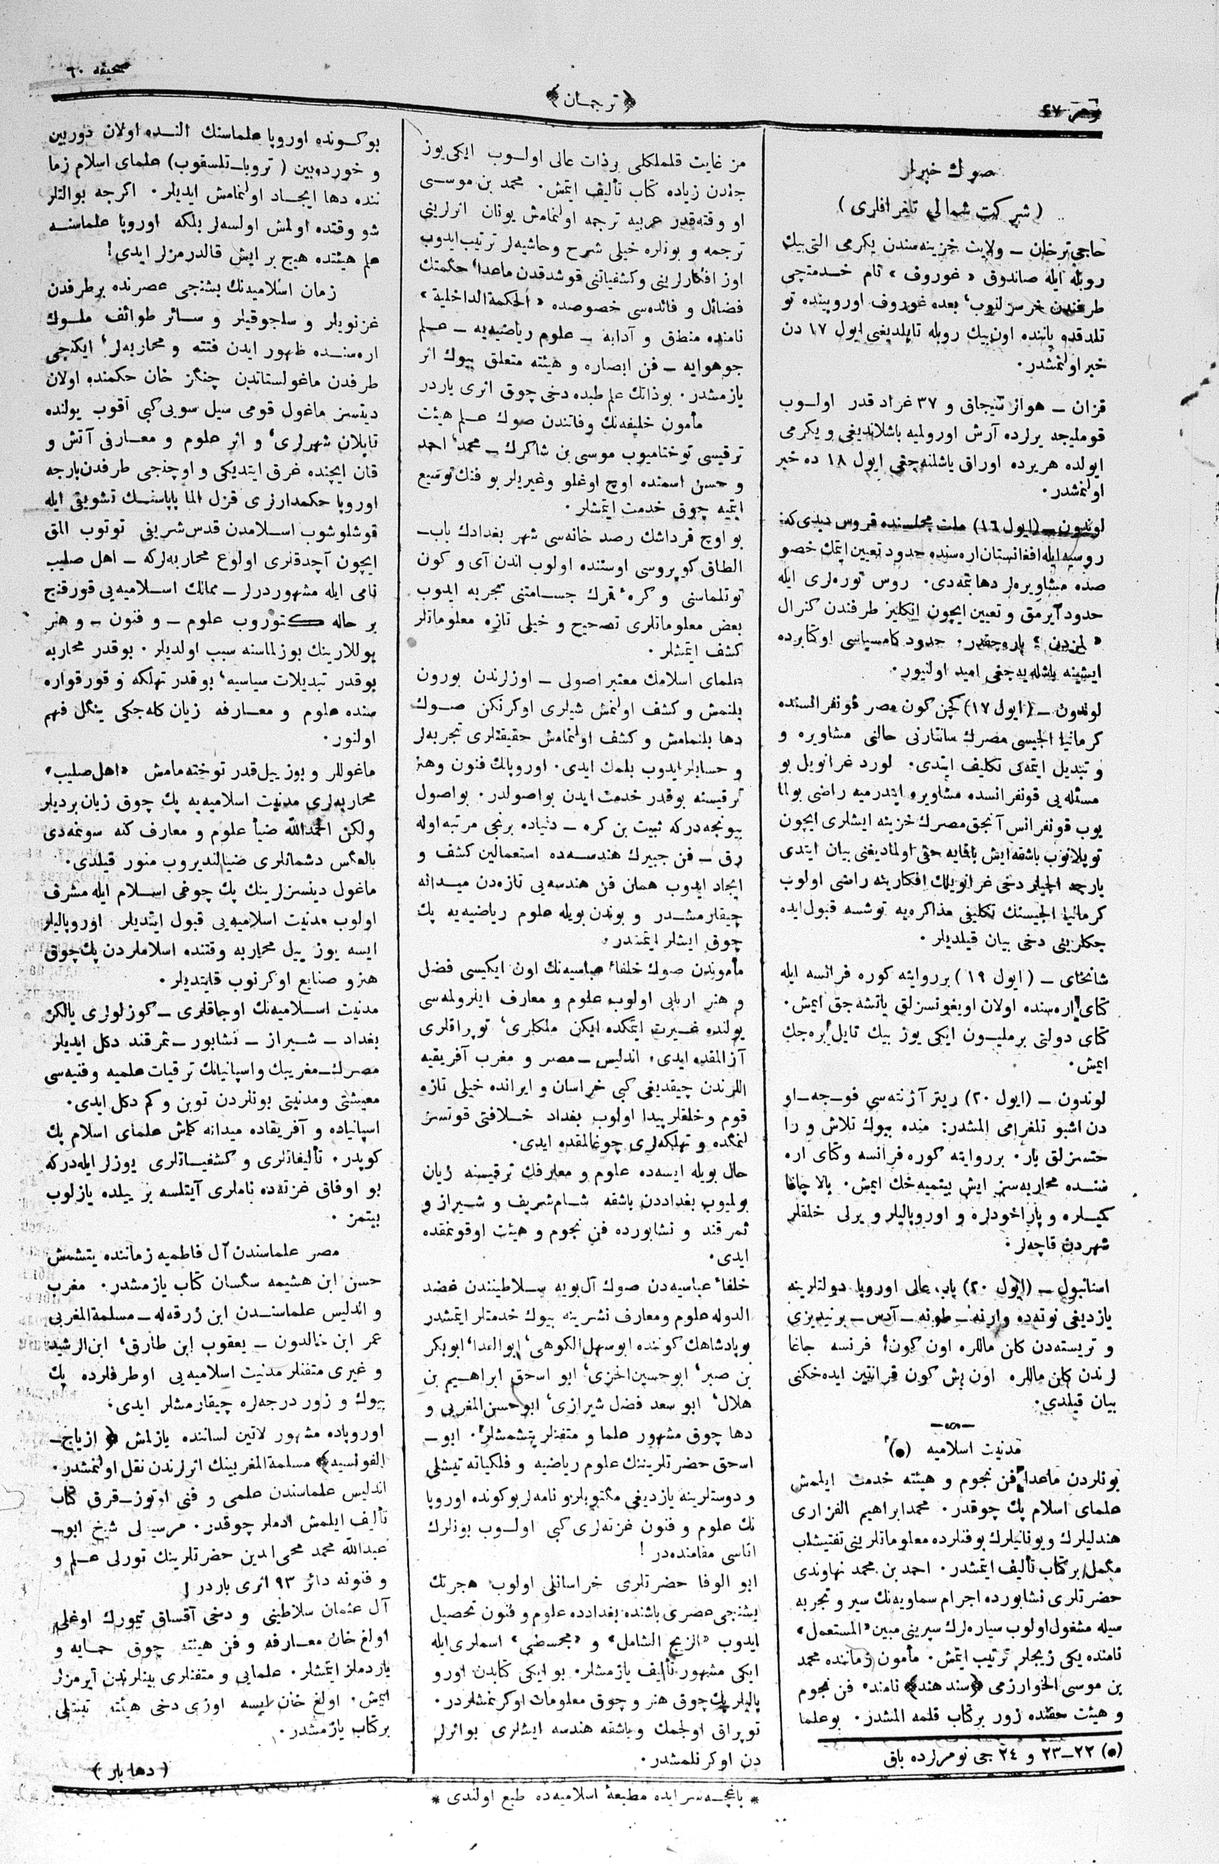 نومر ٤٧
﴿ ترجمان ﴾
صحیفه ٦٠
صوك خبرلر
( شركت شمالی تلغرافلری )
حاجی ترخان ــ ولایت خزینه‌سندن یكرمی التی بیك
روبله ایله صاندوق «غوروف» نام خدمتچی
طرفندن خرسزلنوب٬ بعده غوروف اوروپینده تو
تلدقده یاننده اون بیك روبله تاپلدیغی ایول ١٧ دن
خبر اولنمشدر.
قزان ــ هوالر تنیجاق و ٣٧ غراد قدر اولوب
قوملیجه یرلرده آرش اورولمیه باشلاندیغی و یكرمی
ایولده هریرده اوراق باشلنه‌جغی ایول ١٨ ده خبر
اولنمشدر.
لوندون ــ (ایول ١٦) ملت مجلسنده قروس دیدی‌كه:
روسیه ایله افغانستان اره‌سنده حدود تعیین ایتمك خصو
صده مشاوره‌لر دها بتمه‌دی. روس توره‌لری ایله
حدود آیرمق و تعیین ایچون انكلیز طرفندن كنرال
« لمزدن » باره‌جقدر. حدود كامسیاسی اوكتابرده
ایشینه باشلایه‌جغی امید اولنیور.
لوندون ــ (ایول ١٧) كچن كون مصر قونفرانسنده
كرمانیا الچیسی مصرك سانتارنی حالنی مشاوره و
و تبدیل ایتمه‌كی تكلیف ایتدی. لورد غرانویل بو
مسئله‌یی قونفرانسده مشاوره ایتدرمیه راضی بولما
یوب قونفرانس آنجق مصرك خزینه ایشلری ایچون
توپلانوب باشقه ایش باقمایه حقی اولمادیغنی بیان ایتدی
یارچه الچیلر دخی غرانویلك افكارینه راضی اولوب
كرمانیا الچیسنك تكلیفی مذاكره‌یه توشسه قبول ایده
جكلرینی دخی بیان قیلدیلر.
شانخای ــ (ایول ١٩) بر روایته كوره فرانسه ایله
كتای اره‌سنده اولان اویغونسزلق یاتشه‌جق ایمش.
كتای دولتی بر ملیون ایكی یوز بیك تایل بره‌جك
ایمش.
لوندون ــ (ایول ٢٠) ریتر آژنته‌سی فو ــ جه ــ او
دن اشبو تلغرامی المشدر: منده بیوك تلاش و را
حتسزلق بار. بر روایته كوره فرانسه و كتای اره
سنده محاربه‌سز ایش بیتمیه‌جك ایمش. بالا چاغا
كمیلره و پاراخودلره و اوروپالیلر و یرلی خلقلر
شهردن قاچه‌لر.
استانبول ــ (ایول ٢٠) باب عالی اوروپا دولتلرینه
یازدیغی نوته‌ده وارنه ــ طونه ــ آدس ــ برندیزی
و تریسته‌دن كلن ماللره اون كون٬ فرنسه جاغا
لرندن كلن ماللره اون بش كون قرانتین ایده‌جكنی
بیان قیلدی.
مدنیت اسلامیه (٥)
بونلردن ماعدا فن نجوم و هیئته خدمت ایلمش
علمای اسلام پك چوقدر. محمد ابراهیم الفزاری
هندلیلرك و یونانیلرك بو فنلرده معلوماتلرینی تفتیشلاب
مكمل بر كتاب تألیف ایتمشدر. احمد بن محمد نهاوندی
حضرتلری نشابورده اجرام سماویه‌نك سیر و تجربه
سیله مشغول اولوب سیاره‌لرك سیرینی مبین «المستعمل»
نامنده یكی زیجلر ترتیب ایتمش. مأمون زماننده محمد
بن موسی الخوارزمی ﴿سند هند﴾ نامنده فن نجوم
و هیئت حقنده زور بر كتاب قلمه المشدر. بو علما
(٥) ٢٢ــ٢٣ و ٢٤ جی نومرلرده باق
من غایت قلملكلی بر ذات عالی اولوب ایكی یوز
جلدن زیاده كتاب تألیف ایتمش. محمد بن موسی
او وقته قدر عربیه ترجمه اولنمامش یونان اثرلرینی
ترجمه و بونلره خیلی شرح و حاشیه‌لر ترتیب ایدوب
اوز افكارلرینی و كشفیاتنی قوشدقدن ماعدا٬ حكمتك
فضائل و فائده‌سی خصوصده «الحكمة الداخلیة»
نامنده منطق و آدابه ــ علوم ریاضیه‌یه ــ علم
جوهوایه ــ فن ابصاره و هیئته متعلق بیوك اثر
یازمشدر. بو ذاتك علم طبده دخی چوق اثری باردر
مأمون خلیفه‌نك وفاتندن صوك علم هیئت
ترقیسی توختامیوب موسی بن شاكرك ــ محمد٬ احمد
و حسن اسمنده اوچ اوغلو وغیریلر بو فنك توسیع
ایتمیه چوق خدمت ایتمشلر.
بو اوچ قرداشك رصد خانه‌سی شهر بغدادك باب ــ
الطاق كوپروسی اوستنده اولوب اندن آی و كون
توتلماسنی و كره٬ قمرك جسامتنی تجربه ایدوب
بعض معلوماتلری تصحیح و خیلی تازه معلوماتلر
كشف ایتمشلر.
علمای اسلامك معتبر اصولی ــ اوزلرندن بورون
بلنمش و كشف اولنمش شیلری اوكرنكن صوك
دها بلنمامش و كشف اولنمامش حقیقتلری تجربه‌لر
و حسابلر ایدوب بلمك ایدی. اوروپانك فنون و هنر
ترقیسنه بو قدر خدمت ایدن بو اصولدر. بو اصول
بیونجه‌دركه ثبیت بن كره ــ دنیاده برنجی مرتبه اوله
رق ــ فن جبرك هندسه‌ده استعمالین كشف و
ایجاد ایدوب همان فن هندسه‌یی تازه‌دن میدانه
چیقارمشدر و بوندن بویله علوم ریاضیه‌یه پك
چوق ایشلر ایتمشدر.
مأموندن صوك خلفاء عباسیه‌نك اون ایكیسی فضل
و هنر اربابی اولوب علوم و معارف ایلرولمه‌سی
یولنده غیرت ایتمكده ایكن ملكلری٬ توپراقلری
آزالمقده ایدی. اندلس ــ مصر و مغرب آفریقیه
اللرندن چیقدیغی كبی خراسان و ایرانده خیلی تازه
قوم و خلقلر پیدا اولوب بغداد خلافتی قوتسز
لنمكده و تهلكه‌لری چوغالمقده ایدی.
حال بویله ایسه‌ده علوم و معارفك ترقیسنه زیان
بولمیوب بغداددن باشقه شام شریف و شیراز و
ثمرقند و نشابورده فن نجوم و هیئت اوقونمقده
ایدی.
خلفاء عباسیه‌دن صوك آل بویه سلاطیندن عضد
الدوله علوم و معارف نشرینه بیوك خدمتلر ایتمشدر
بو پادشاهك كوننده ابو سهل الكوهی٬ ابو العدا٬ ابو بكر
بن صبر٬ ابو حسین اخزی٬ ابو اسحق ابراهیم بن
هلال٬ ابو سعد فضل شیرازی٬ ابو حسن المغربی و
دها چوق مشهور علما و متفنلر یتشمشلر. ابو ــ
اسحق حضرتلرینك علوم ریاضیه و فلكیاته تیشلی
و دوستلرینه یازدیغی مكتوبلر و نامه‌لر بو كونده اوروپا
نك علوم و فنون غزته‌لری كبی اولوب بونلرك
اتاسی مقامنده‌در!
ابو الوفا حضرتلری خراسانلی اولوب هجرتك
بشنجی عصری باشنده بغدادده علوم و فنون تحصیل
ایدوب «الزیج الشامل» و «مجسطی» اسملری ایله
ایكی مشهور تألیف یازمشلر. بو ایكی كتابدن اورو
پالیلر پك چوق هنر و چوق معلومات اوكرنمشلردر.
توپراق اولجمك و باشقه هندسه ایشلری بو اثرلر
دن اوكرنلمشدر.
بو كونده اوروپا علماسنك النده اولان دوربین
و خوردوبین (تروباــتلسقوب) علمای اسلام زما
ننده دها ایجاد اولنمامش ایدیلر. اكرچه بو التلر
شو وقتده اولمش اولسه‌لر بلكه اوروپا علماسنه
علم هیئتده هیچ بر ایش قالدرمزلر ایدی!
زمان اسلامیه‌نك بشنجی عصرنده بر طرفدن
غزنویلر و سلجوقیلر و سائر طوائف ملوك
اره‌سنده ظهور ایدن فتنه و محاربه‌لر٬ ایكنجی
طرفدن ماغولستاندن چنگز خان حكمنده اولان
دینسز ماغول قومی سیل سویی كبی آقوب یولنده
تاپلان شهرلری٬ و اثر علوم و معارفی آتش و
قان ایچنده غرق ایتدیكی و اوچنجی طرفدن پارچه
اوروپا حكمدارلری قزل الما پاپاسنك تشویقی ایله
قوشلوشوب اسلامدن قدس شریفی توتوب المق
ایچون آچدقلری اولوغ محاربه‌لركه ــ اهل صلیب
نامی ایله مشهوردرلر ــ ممالك اسلامیه‌یی قورقنج
بر حاله كتوروب علوم ــ و فنون ــ و هنر
یوللارینك بوزلماسنه سبب اولدیلر. بو قدر محاربه
بو قدر تبدیلات سیاسیه٬ بو قدر تهلكه و قورقو اره
سنده علوم و معارفه زیان كله‌جكی ینگل فهم
اولنور.
ماغوللر و یوز ییل قدر توخته‌مامش «اهل صلیب»
محاربه‌لری مدنیت اسلامیه‌یه پك چوق زیان بردیلر
ولكن الحمدلله ضیاء علوم و معارف كنه سونمه‌دی
بالعكس دشمانلری ضیالندیروب منور قیلدی.
ماغول دینسزلرینك پك چوغی اسلام ایله مشرف
اولوب مدنیت اسلامیه‌یی قبول ایتدیلر. اوروپالیلر
ایسه یوز ییل محاربه وقتنده اسلاملردن پك چوق
هنر و صنایع اوكرنوب قایتدیلر.
مدنیت اسلامیه‌نك اوجاقلری ــ كوزلولری یالكز
بغداد ــ شیراز ــ نشابور ــ ثمرقند دكل ایدیلر
مصرك ــ مغریبك و اسپانیانك ترقیات علمیه و فنیه‌سی
معیشتی و مدنیتی بونلردن توبن و كم دكل ایدی.
اسپانیاده و آفریقاده میدانه كلمش علمای اسلام پك
كوپدر. تألیفاتلری و كشفیاتلری یوزلر ایله‌دركه
بو اوفاق غزته‌ده ناملری آیتلسه بر ییلده یازلوب
بیتمز.
مصر علماسندن آل فاطمیه زماننده یتشمش
حسن ابن هشیمه سگسان كتاب یازمشدر. مغرب
و اندلس علماسندن ابن زرقه‌له ــ مسلمة المغربی
عمر ابن خالدون ــ یعقوب ابن طارق٬ ابن الرشید
و غیری متفنلر مدنیت اسلامیه‌یی او طرفلرده پك
بیوك و زور درجه‌لره چیقارمشلر ایدی.
اوروپاده مشهور لاتین لساننده یازلمش ﴿ازیاج ــ
الفونسیه﴾ مسلمة المغربینك اثرلرندن نقل اولنمشدر.
اندلس علماسندن علمی و فنی اوتوز ــ قرق كتاب
تألیف ایلمش ادملر چوقدر. مرسیه‌لی شیخ ابو ــ
عبدالله محمد محی الدین حضرتلرینك تورلی علم و
و فنونه دائر ٩٣ اثری باردر!
آل عثمان سلاطینی و دخی آقساق تیمورك اوغلی
اولغ خان معارفه و فن هیئته چوق حمایه و
یاردملر ایتمشلر. علمایی و متفنلری یینلرندن آیرمزلر
ایمش. اولغ خان ایسه اوزی دخی هیئته تیشلی
بر كتاب یازمشدر.
( دها بار )
* باغچه‌سرایده مطبعهٔ اسلامیه‌ده طبع اولندی *